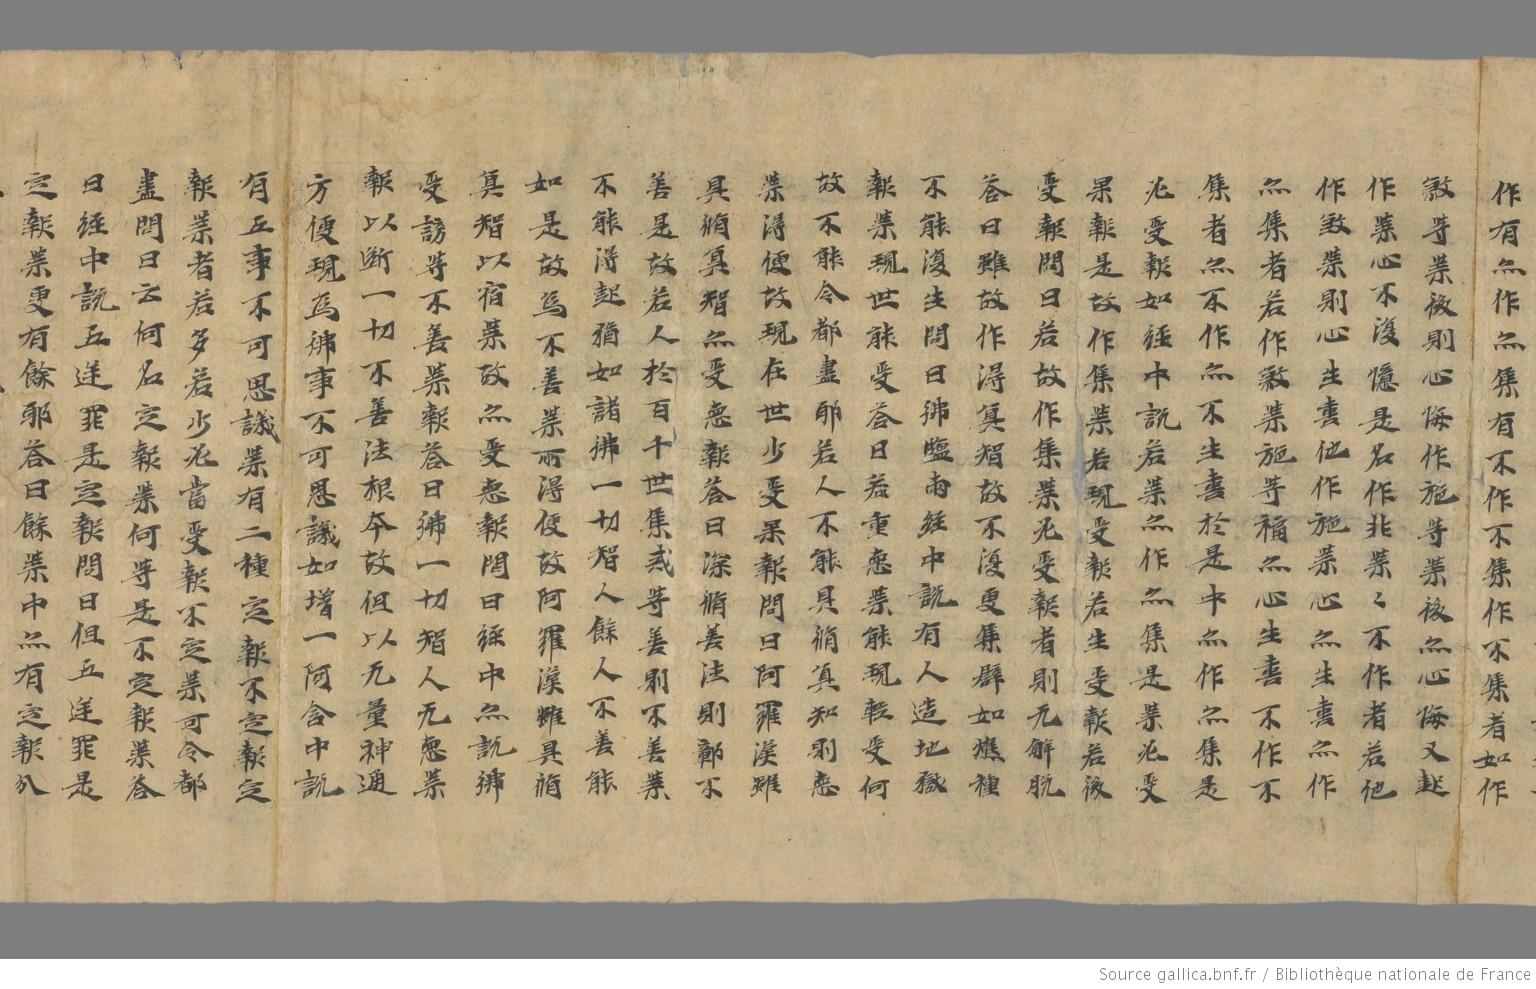 作有亦作亦集有不作不集作不集者如作
煞等業後則心悔作施等業後亦心悔又起
作業心不復憶是名作非業〻不作者若他
作煞業則心生喜他作施業心亦生喜亦作
亦集者若作煞業施等福亦心生喜不作不
集者亦不作亦不生喜於是中亦作亦集是
必受報如經中說若業亦作亦集是業必受
果報是故作集業若現受報若生受報若後
受報問曰若故作集業必受報者則无解脫
荅曰雖故作得真智故不復更集譬如燋種
不能復生問曰佛鹽兩經中說有人造地獄
報業現世能受荅曰若重惡業能現輕受何
故不能令都盡耶若人不能具脩真知則惡
業得便故現在世少受果報問曰阿羅漢雖
具脩真智亦受惡報荅曰深脩善法則鄣不
善是故若人於百千世集戒等善則不善業
不能得起猶如諸佛一切智人餘人不善能
如是故為不善業所得便故阿羅漢雖具脩
真智以宿業故亦受惡報問曰經中亦說佛
受謗等不善業報荅曰佛一切智人无惡業
報以斷一切不善法根本故但以无量神通
方便現為佛事不可思議如增一阿含中說
有五事不可思議業有二種定報不定報定
報業者若多若少必當受報不定業可令都
盡問曰云何名定報業何等是不定報業荅
曰經中說五逆罪是定報問曰但五逆罪是
定報業更有餘耶荅曰餘業中亦有定報分
Source gallica.bnf.fr / Bibliothèque nationale de France